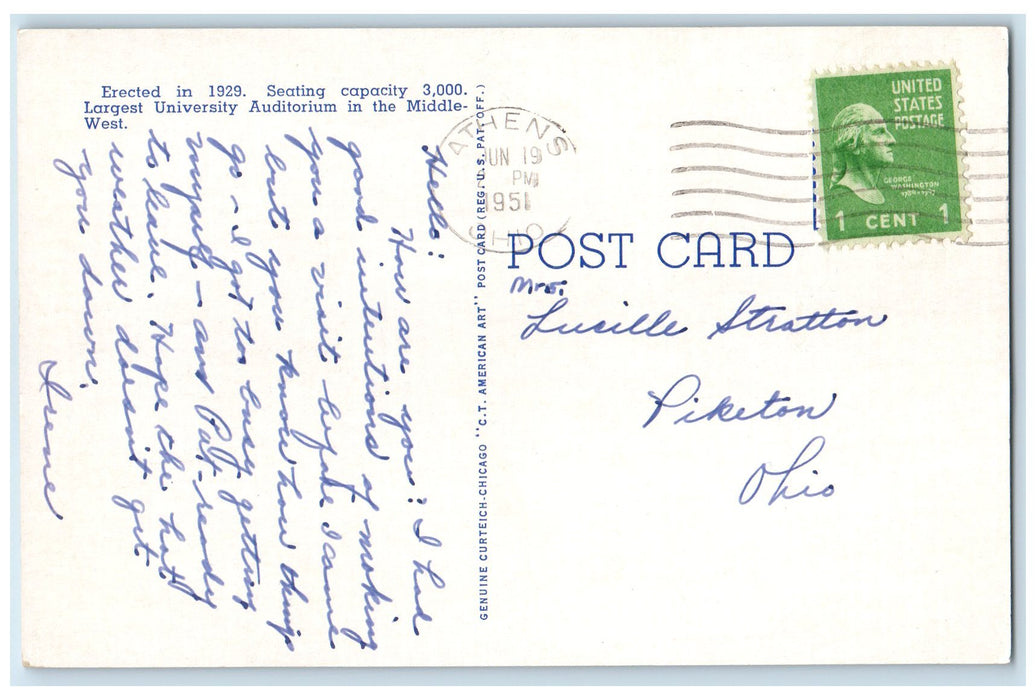 Erected in 1929. Seating capacity 3,000.
Largest University Auditorium in the Middle-
West.
Hello:
How are you? I had
good intentions of making
you a visit before I came
but you know how things
go - I got too busy getting
myself - and Pat - ready
to leave. Hope the hot
weather doesn't get
you down.
Irene
GENUINE CURTEICH-CHICAGO "C.T. AMERICAN ART" POST CARD (REG. U.S. PAT. OFF.)
ATHENS
JUN 19
PM
1951
OHIO
UNITED
STATES
POSTAGE
GEORGE
WASHINGTON
1789-1797
1 CENT 1
POST CARD
Mrs.
Lucille Stratton
Piketon
Ohio